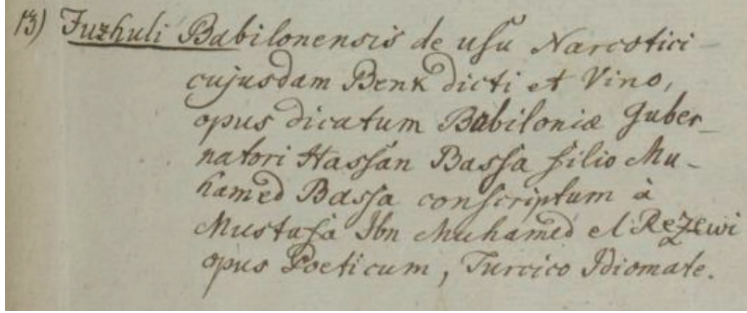 13) Fuzhuli Babilonensis de usu Narcotici
cujusdam Benk dicti et Vino,
opus dicatum Babiloniæ Guber_
natori Hassan Bassa filio Mu_
hamed Bassa conscriptum à
Mustafa Ibn Muhamed el Rezewi
opus Poeticum, Turcico Idiomate.